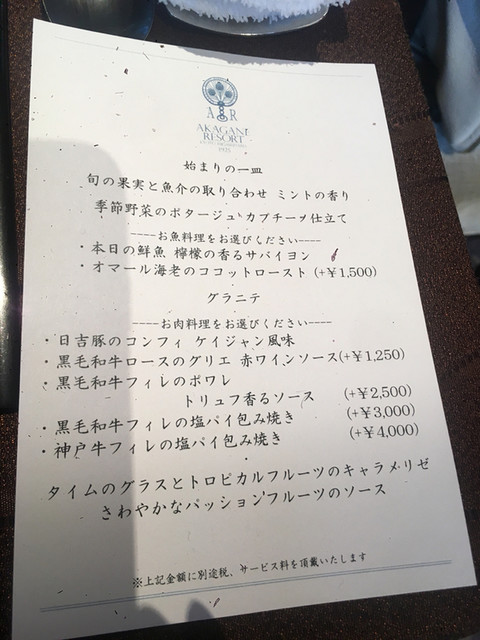 AR
AKAGANE
RESORT
1925
始まりの一皿
旬の果実と魚介の取り合わせ ミントの香り
季節野菜のポタージュ カプチーノ仕立て
----お魚料理をお選びください----
・本日の鮮魚 檸檬の香るサバイヨン
・オマール海老のココットロースト (+¥1,500)
グラニテ
----お肉料理をお選びください----
・日吉豚のコンフィ ケイジャン風味
・黒毛和牛ロースのグリエ 赤ワインソース(+¥1,250)
・黒毛和牛フィレのポワレ
トリュフ香るソース (+¥2,500)
・黒毛和牛フィレの塩パイ包み焼き (+¥3,000)
・神戸牛フィレの塩パイ包み焼き (+¥4,000)
タイムのグラスとトロピカルフルーツのキャラメリゼ
さわやかなパッションフルーツのソース
※上記金額に別途税、サービス料を頂戴いたします